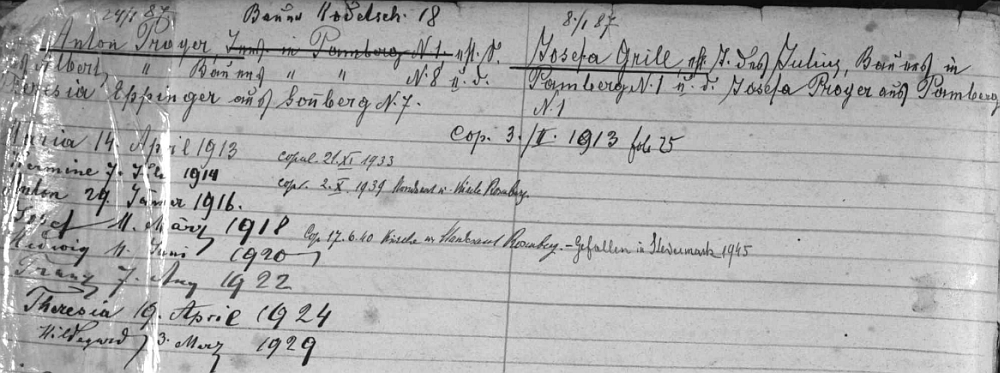 24/1 87 Bauer Kodetsch. 18 8./1 87
Anton Proyer, Inns in Pamberg N. 1. ehl. S. Josefa Grill ehl. T. des Julius, Bauers in
Albert, " Bauers " " N. 8 u. d. Pamberg N. 1 u. d. Josefa Proyer aus Pamberg
Theresia Eppinger aus N. 7. N. 1
Cop. 3./II. 1913 fol. 25
Maria 14. April 1913 copul. 21. XI 1933
Hermine 7. Juli 1914 cop. 2. X. 1939 Standesamt u. Kirche
Anton 29. Jänner 1916.
Josef 11. März 1918
Hedwig 11. Juni 1920 Cop. 17.6.40 Kirche u. Standesamt - Gefallen in Steiermark 1945
Franz 7. Aug 1922
Theresia 19. April 1924
Hildegard 3. Merz 1929